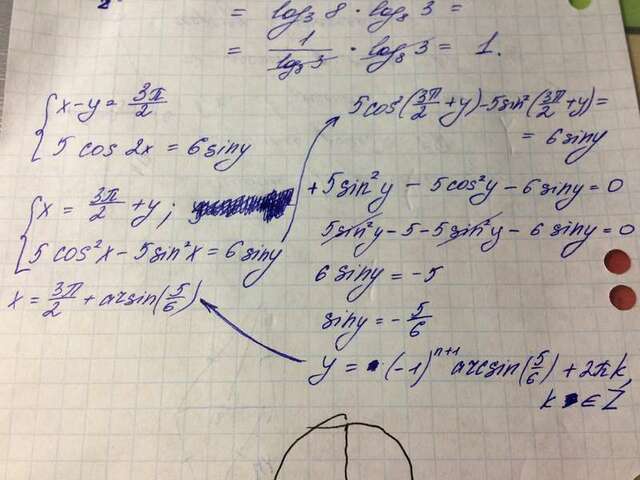 = log₃ 8 · log₈ 3 =
= 1/(log₈ 3) · log₈ 3 = 1.
{ x - y = 3π/2
5 cos 2x = 6 sin y
{ x = 3π/2 + y ;
5 cos² x - 5 sin² x = 6 sin y
x = 3π/2 + arsin(5/6)
5 cos² (3π/2 + y) - 5 sin² (3π/2 + y) =
= 6 sin y
+ 5 sin² y - 5 cos² y - 6 sin y = 0
5 sin² y - 5 - 5 sin² y - 6 sin y = 0
6 sin y = -5
sin y = - 5/6
y = (-1)ⁿ⁺¹ arcsin(5/6) + 2πk,
k ∈ Z